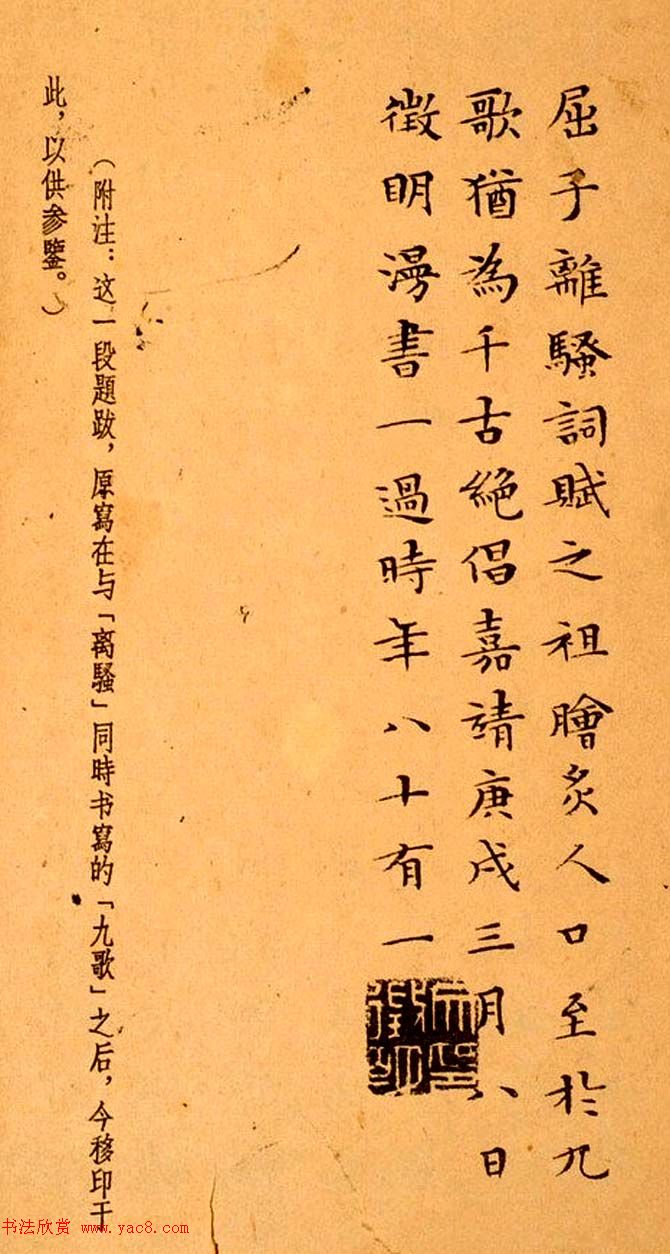 屈子離騷詞賦之祖膾炙人口至於九
歌猶為千古絶倡嘉靖庚戌三月八日
徵明漫書一過時年八十有一
(附注：这一段題跋，原寫在与「离騷」同時书寫的「九歌」之后，今移印于
此，以供参鑒。)
书法欣赏 www.yac8.com